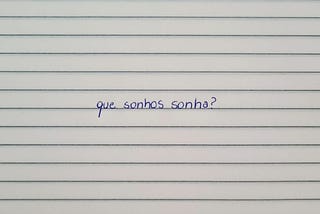 que sonhos sonha?